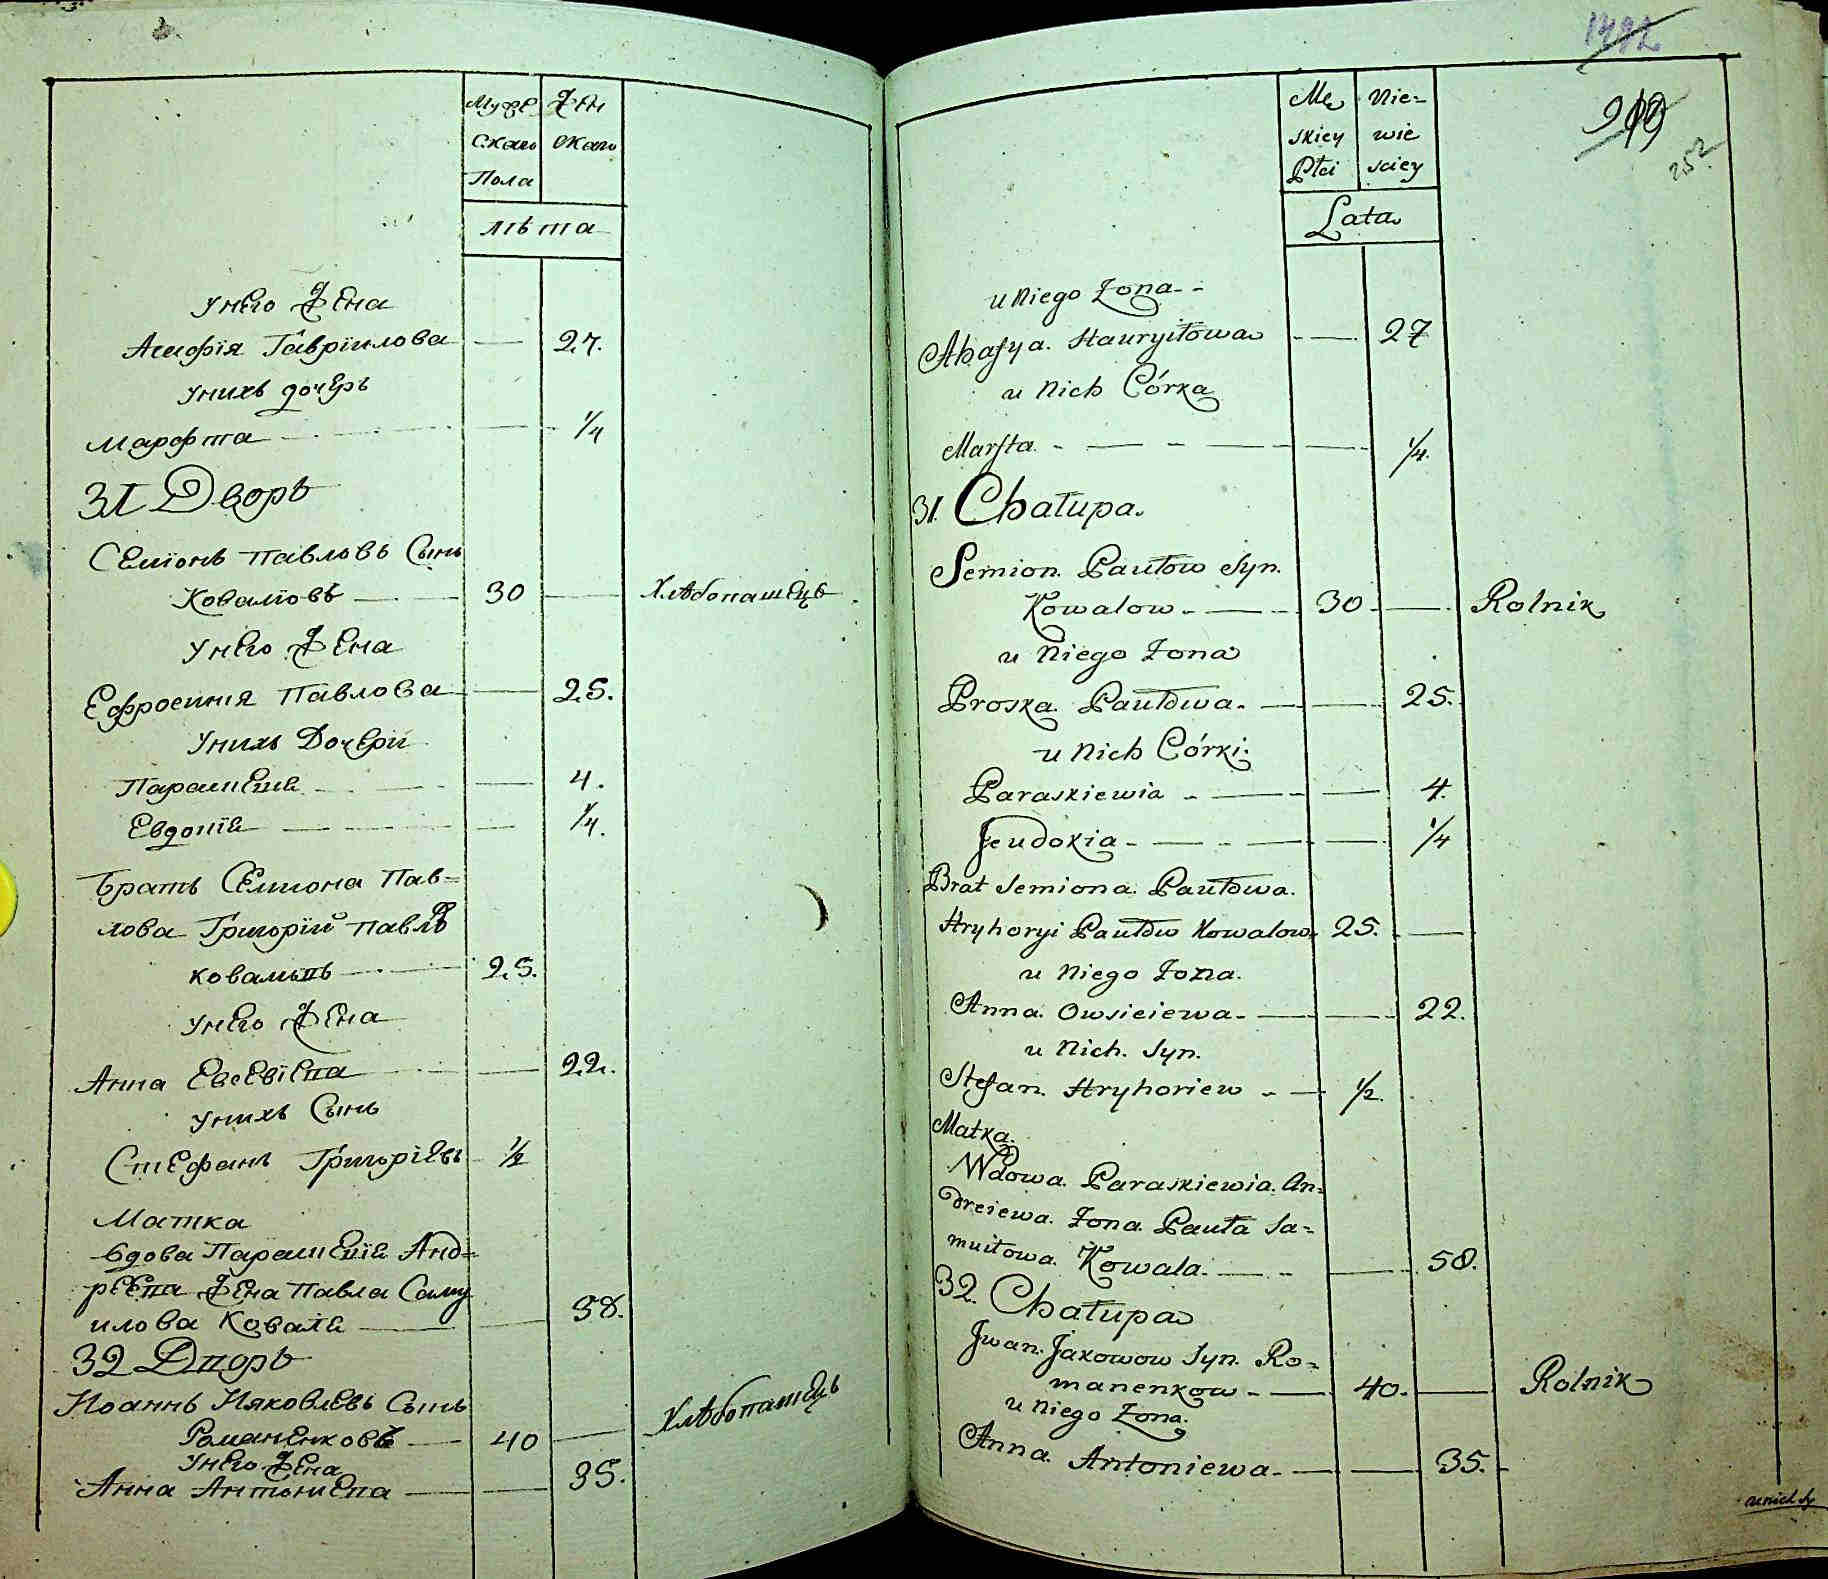 Муже
Жен
скаго
скаго
Пола
лѣта
унего Жена
Агафія Гавріилова 27.
унихъ дочерь
Марфта 1/4
31 Дворъ
Семіонъ Павловъ Сынъ
Коваліовъ 30 Хлѣбопашецъ
унего Жена
Ефросинія Павлова 25.
унихъ Дочери
Параскевіа 4.
Евдокіа 1/4.
братъ Семиона Пав=
лова Григорій Павлов
Ковальовъ 25.
унего Жена
Анна Евсевіева 22.
унихъ Сынъ
Стефанъ Григоріевъ 1/2
Матка
вдова Параскевіа Анд=
реева Жена Павла Саму
илова Коваля 58.
32 Дворъ
Иоаннъ Ияковлевъ Сынъ
Романенковъ 40 Хлѣбопашецъ
унего Жена
Анна Антониева 35.
1492
252
Mę
Nie=
skiey
wie
Płci
sciey
Lata
u Niego Zona
Ahafya Hauryiłowa 27
u Nich Córka
Marfta 1/4.
31. Chałupa.
Semion Paułow Syn.
Kowalow 30 Rolnik
u Niego Zona
Proska Paułowa 25.
u Nich Córki.
Paraskiewia 4.
Jeudokia 1/4
Brat Semiona Paułowa.
Hryhoryi Paułow Kowalow 25.
u Niego Zona.
Anna Owsieiewa 22.
u Nich Syn.
Stefan Hryhoriew 1/2.
Matka.
Wdowa Paraskiewia An=
dreiewa Zona Pauła Sa=
muiłowa Kowala 58.
32. Chałupa
Jwan Jakowow Syn. Ro=
manenkow 40. Rolnik
u Niego Zona.
Anna Antoniewa 35.
unich Sy